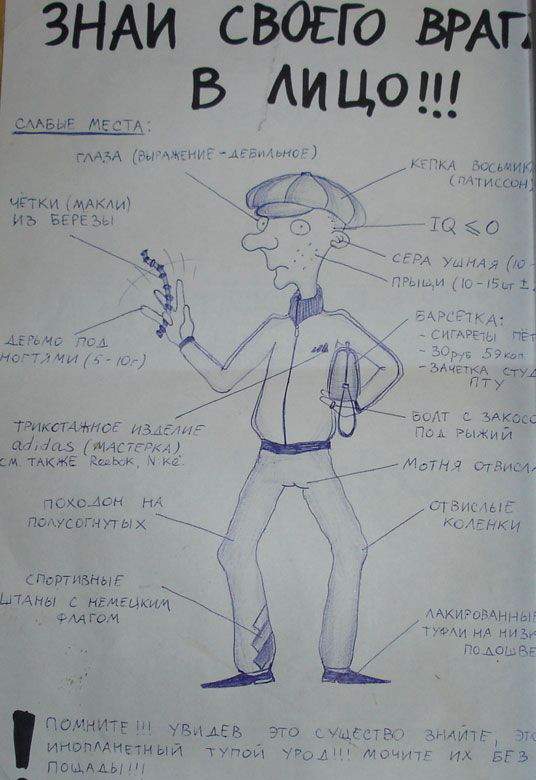 ЗНАЙ СВОЕГО ВРАГА
В ЛИЦО!!!
СЛАБЫЕ МЕСТА:
ГЛАЗА (ВЫРАЖЕНИЕ - ДЕБИЛЬНОЕ)
КЕПКА ВОСЬМИК
(ПАТИССОН)
ЧЁТКИ (МАКЛИ)
ИЗ БЕРЕЗЫ
IQ ⩽ 0
СЕРА УШНАЯ (10-
ПРЫЩИ (10-15шт ±
БАРСЕТКА:
- СИГАРЕТЫ ПЁТ
- 30 РУБ 59 коп
- ЗАЧЕТКА СТУД
ПТУ
ДЕРЬМО ПОД
НОГТЯМИ (5-10г)
БОЛТ С ЗАКОСО
ПОД РЫЖИЙ
ТРИКОТАЖНОЕ ИЗДЕЛИЕ
adidas (МАСТЕРКА)
СМ. ТАКЖЕ Reebok, Nike.
МОТНЯ ОТВИСЛА
ПОХОДОН НА
ПОЛУСОГНУТЫХ
ОТВИСЛЫЕ
КОЛЕНКИ
СПОРТИВНЫЕ
ШТАНЫ С НЕМЕЦКИМ
ФЛАГОМ
ЛАКИРОВАННЫЕ
ТУФЛИ НА НИЗК
ПОДОШВЕ
! ПОМНИТЕ!!! УВИДЕВ ЭТО СУЩЕСТВО ЗНАЙТЕ, ЭТО
ИНОПЛАНЕТНЫЙ ТУПОЙ УРОД!!! МОЧИТЕ ИХ БЕЗ
ПОЩАДЫ!!!